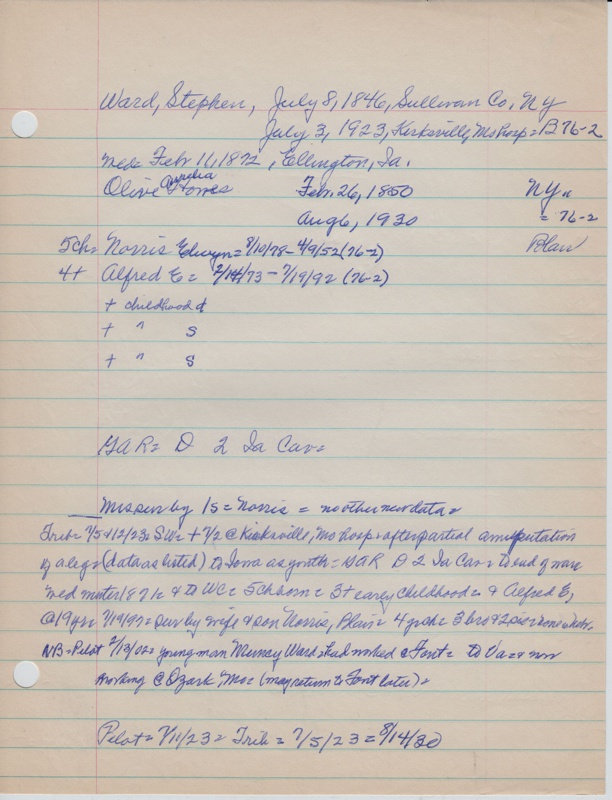 Ward, Stephen, July 8, 1846, Sullivan Co, NY
July 3, 1923, Kirksville, Mo hosp = B 76-2
med = Feb 11, 1872, Ellington, Ia.
Olive Aurelia Homes Feb. 26, 1850 NY
Aug 6, 1930 = 76-2
5ch = Norris Edwyn = 8/10/78 - 4/9/52 (76-2) Blair
4+ Alfred E = 2/14/73 - 7/19/92 (76-2)
+ childhood d
+ " s
+ " s
GAR = D 2 Ia Cav =
Mrs sur by 1s = Norris = no other new data =
Trib = 7/5 & 12/23 = SW = + 7/2 @ Kirksville, Mo hosp + after partial amputation
of a leg = (data as listed) to Iowa as youth = GAR D 2 Ia Cav = to end of war
med & to WC = 5ch born = 3+ early childhood = & Alfred E,
@ 19 yr = 7/19/92 = sur by wife & son Norris, Blair = 4 gch = 3 bro & 2 sis =
NB = Pilot 2/13/02 = young man Murray Ward = had worked @ Font = to Va = & now
working @ Ozark, Mo = (may return to Font later) =
Pilot = 7/11/23 = Trib = 7/5/23 = 8/14/30